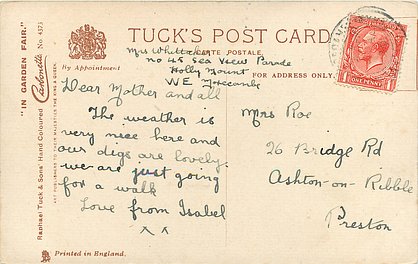 "IN GARDEN FAIR."
Carbonette No. 4375
Raphael Tuck & Sons' Hand Coloured
By Appointment
TUCK'S POST CARD
CARTE POSTALE
FOR ADDRESS ONLY
Mrs Whittaker
no 45 Sea View Parade
Holly Mount
WE Morecombe
Dear Mother and all
The weather is
very nice here and
our digs are lovely
we are just going
for a walk
Love from Isabel
x x
Mrs Roe
26 Bridge Rd
Ashton-on-Ribble
Preston
1 ONE PENNY 1
Printed in England.